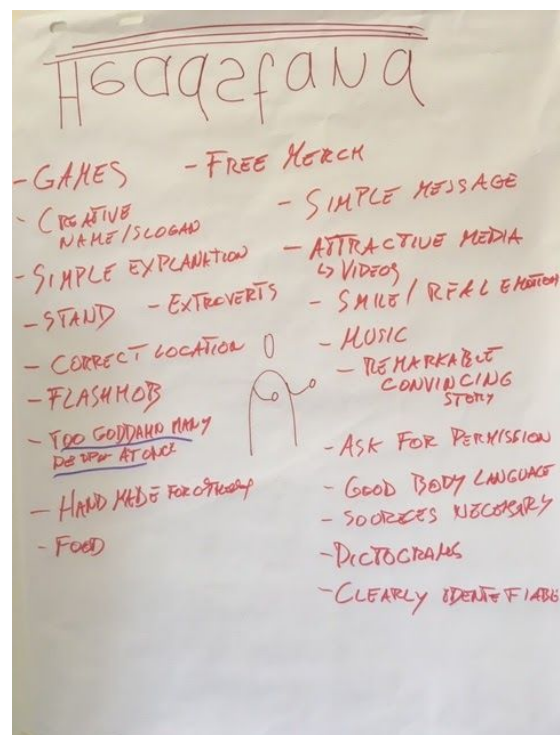 Headstand
- GAMES
- FREE MERCH
- CREATIVE
NAME/SLOGAN
- SIMPLE EXPLANATION
- STAND
- EXTROVERTS
- CORRECT LOCATION
- FLASHMOB
- TOO GODDAMN MANY
AT ONCE
- HAND MADE
- FOOD
- SIMPLE MESSAGE
- ATTRACTIVE MEDIA
↳ VIDEOS
- SMILE / REAL EMOTION
- MUSIC
- REMARKABLE
CONVINCING
STORY
- ASK FOR PERMISSION
- GOOD BODY LANGUAGE
- SOURCES NECESSARY
- PICTOGRAMS
- CLEARLY IDENTIFIABLE